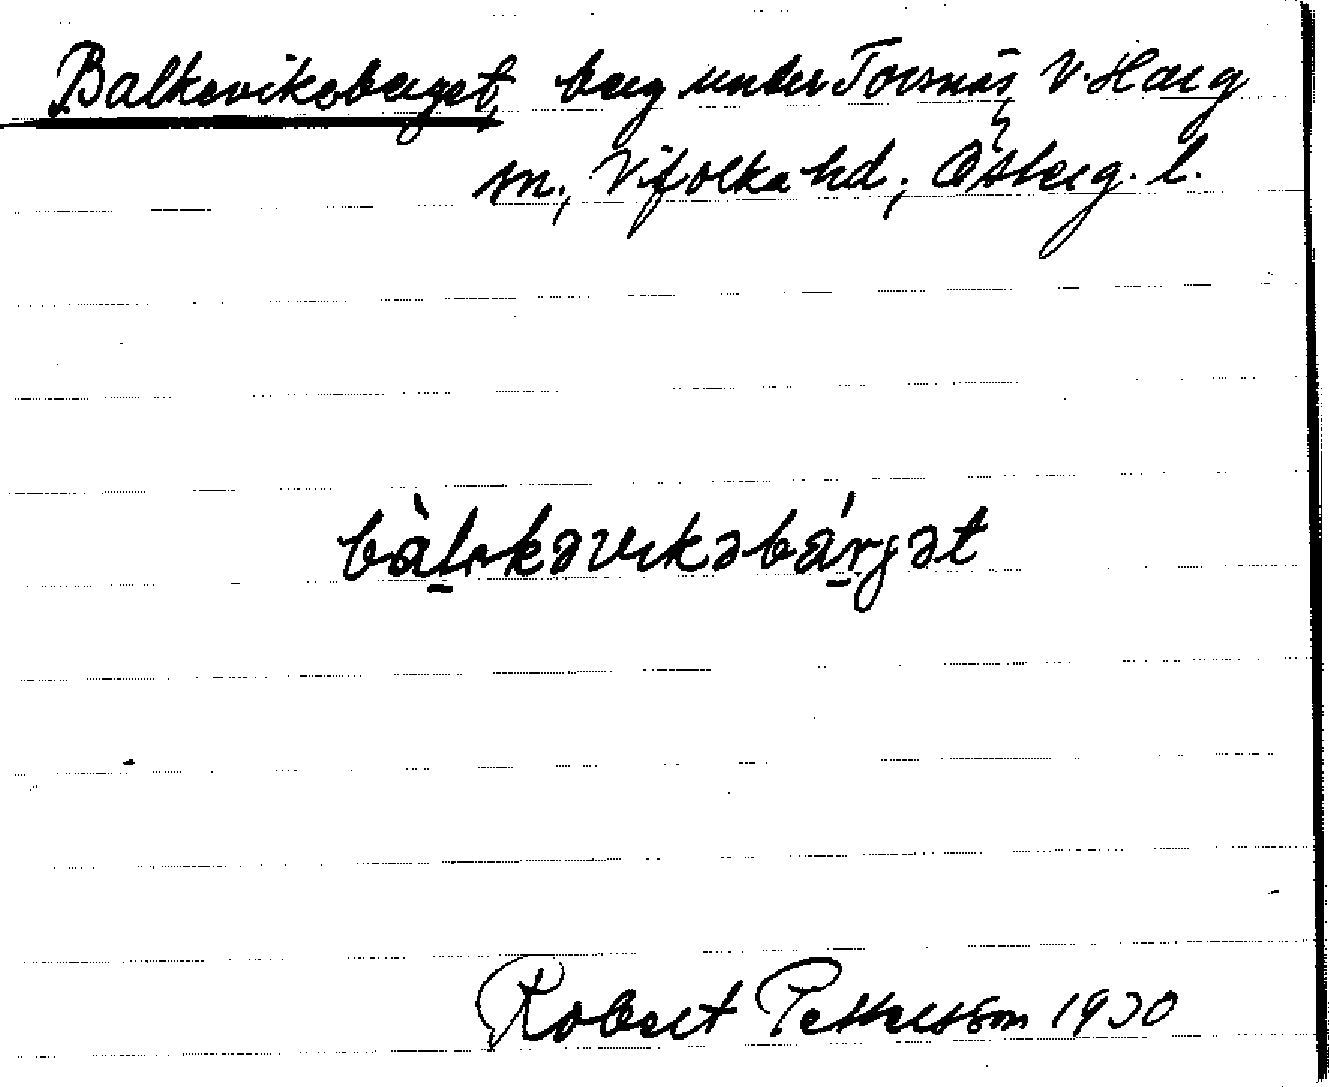 Balkevikeberget, berg under Torsnäs, V. Harg
sn., Vifolka hd; Österg. l.
bàlkəvikəbárgət
Robert Pettersson 1930